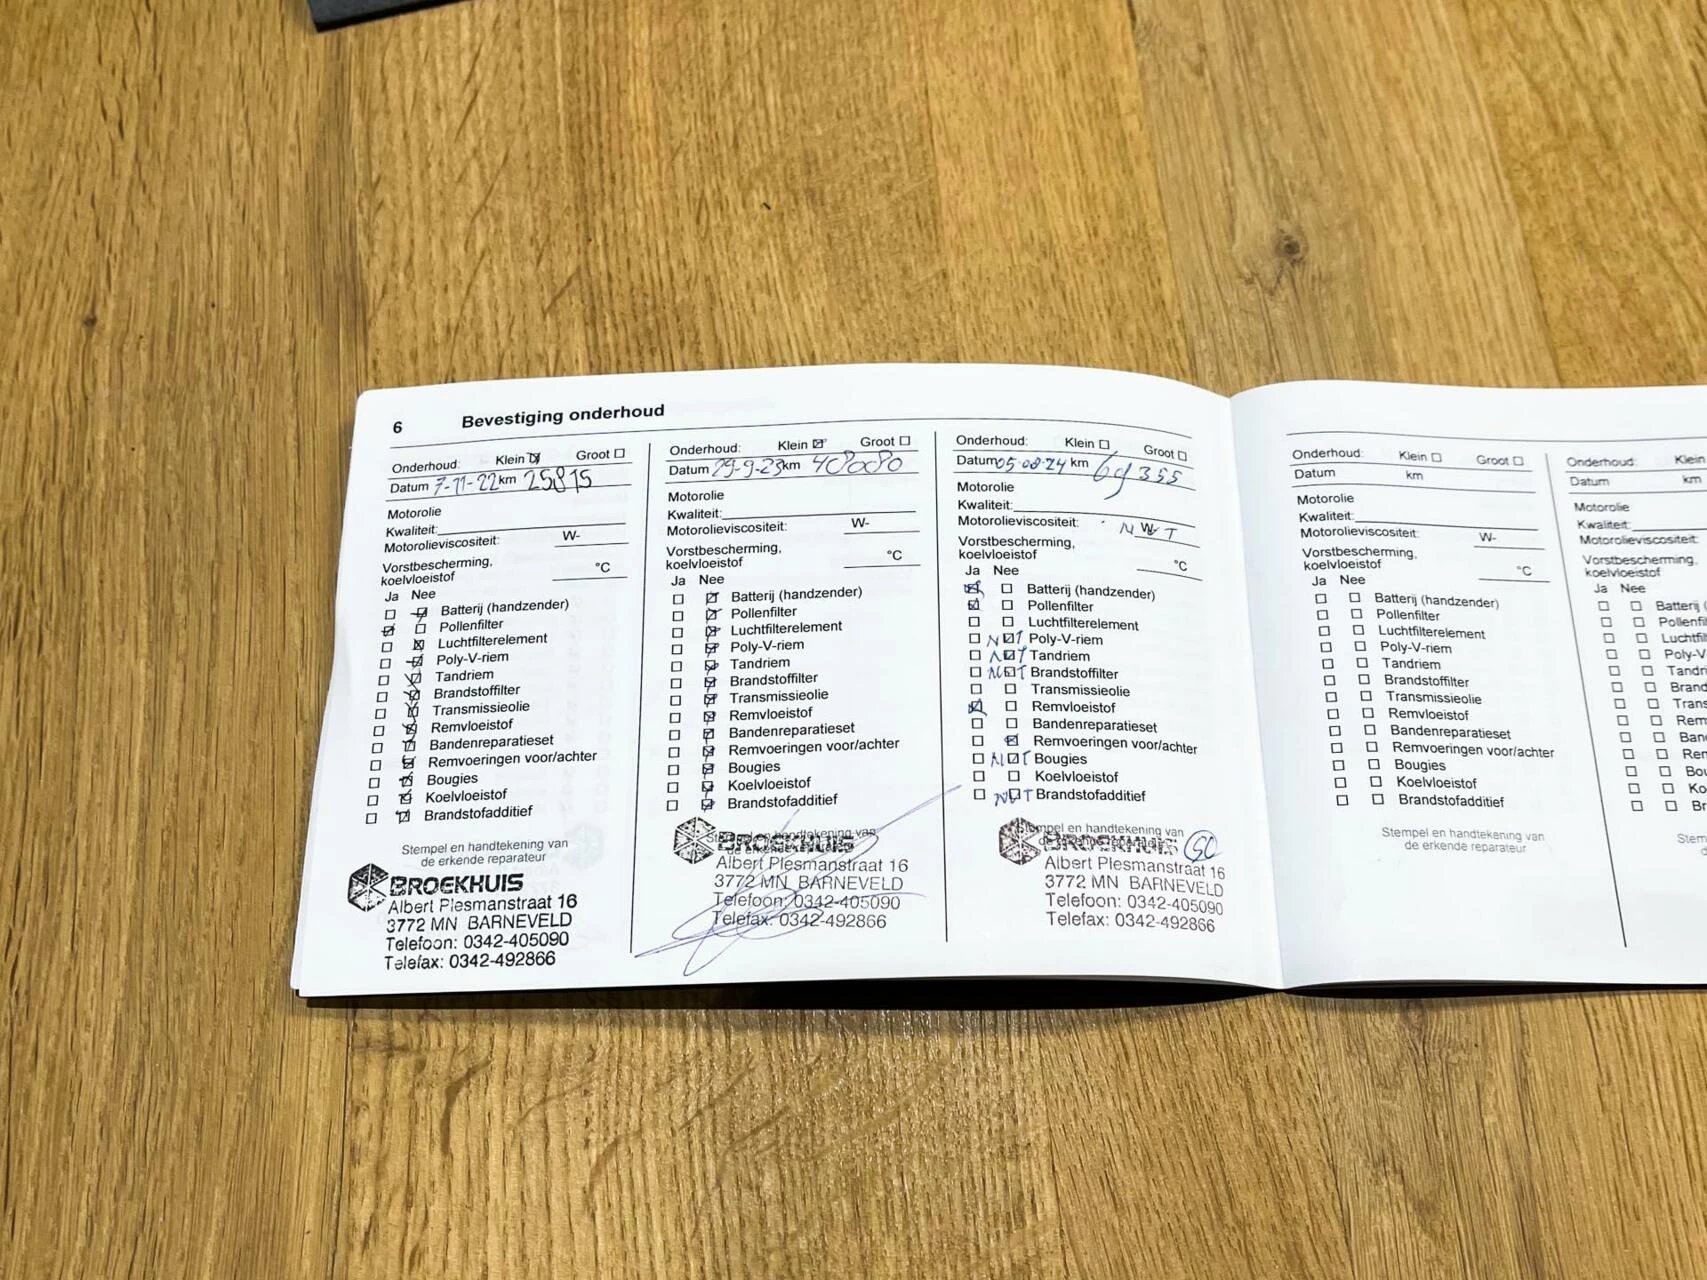 6 Bevestiging onderhoud
Onderhoud: Klein Groot
Datum 7-11-22 km 25815
Motorolie
Kwaliteit:
Motorolieviscositeit: W-
Vorstbescherming,
koelvloeistof °C
Ja Nee
Batterij (handzender)
Pollenfilter
Luchtfilterelement
Poly-V-riem
Tandriem
Brandstoffilter
Transmissieolie
Remvloeistof
Bandenreparatieset
Remvoeringen voor/achter
Bougies
Koelvloeistof
Brandstofadditief
Stempel en handtekening van
de erkende reparateur
BROEKHUIS
Albert Plesmanstraat 16
3772 MN BARNEVELD
Telefoon: 0342-405090
Telefax: 0342-492866
Onderhoud: Klein Groot
Datum 29-9-23 km 48080
Motorolie
Kwaliteit:
Motorolieviscositeit: W-
Vorstbescherming,
koelvloeistof °C
Ja Nee
Batterij (handzender)
Pollenfilter
Luchtfilterelement
Poly-V-riem
Tandriem
Brandstoffilter
Transmissieolie
Remvloeistof
Bandenreparatieset
Remvoeringen voor/achter
Bougies
Koelvloeistof
Brandstofadditief
Stempel en handtekening van
de erkende reparateur
BROEKHUIS
Albert Plesmanstraat 16
3772 MN BARNEVELD
Telefoon: 0342-405090
Telefax: 0342-492866
Onderhoud: Klein Groot
Datum 05-08-24 km 69355
Motorolie
Kwaliteit:
Motorolieviscositeit: W-
Vorstbescherming,
koelvloeistof °C
Ja Nee
Batterij (handzender)
Pollenfilter
Luchtfilterelement
NVT Poly-V-riem
NVT Tandriem
NVT Brandstoffilter
Transmissieolie
Remvloeistof
Bandenreparatieset
Remvoeringen voor/achter
NVT Bougies
Koelvloeistof
NVT Brandstofadditief
Stempel en handtekening van
de erkende reparateur
BROEKHUIS
Albert Plesmanstraat 16
3772 MN BARNEVELD
Telefoon: 0342-405090
Telefax: 0342-492866
Onderhoud: Klein Groot
Datum km
Motorolie
Kwaliteit:
Motorolieviscositeit: W-
Vorstbescherming,
koelvloeistof °C
Ja Nee
Batterij (handzender)
Pollenfilter
Luchtfilterelement
Poly-V-riem
Tandriem
Brandstoffilter
Transmissieolie
Remvloeistof
Bandenreparatieset
Remvoeringen voor/achter
Bougies
Koelvloeistof
Brandstofadditief
Stempel en handtekening van
de erkende reparateur
Onderhoud: Klein
Datum km
Motorolie
Kwaliteit:
Motorolieviscositeit:
Vorstbescherming,
koelvloeistof
Ja Nee
Batterij
Pollenfi
Luchtfil
Poly-V
Tandri
Brand
Trans
Rem
Ban
Ren
Bo
Ko
Br
Stem